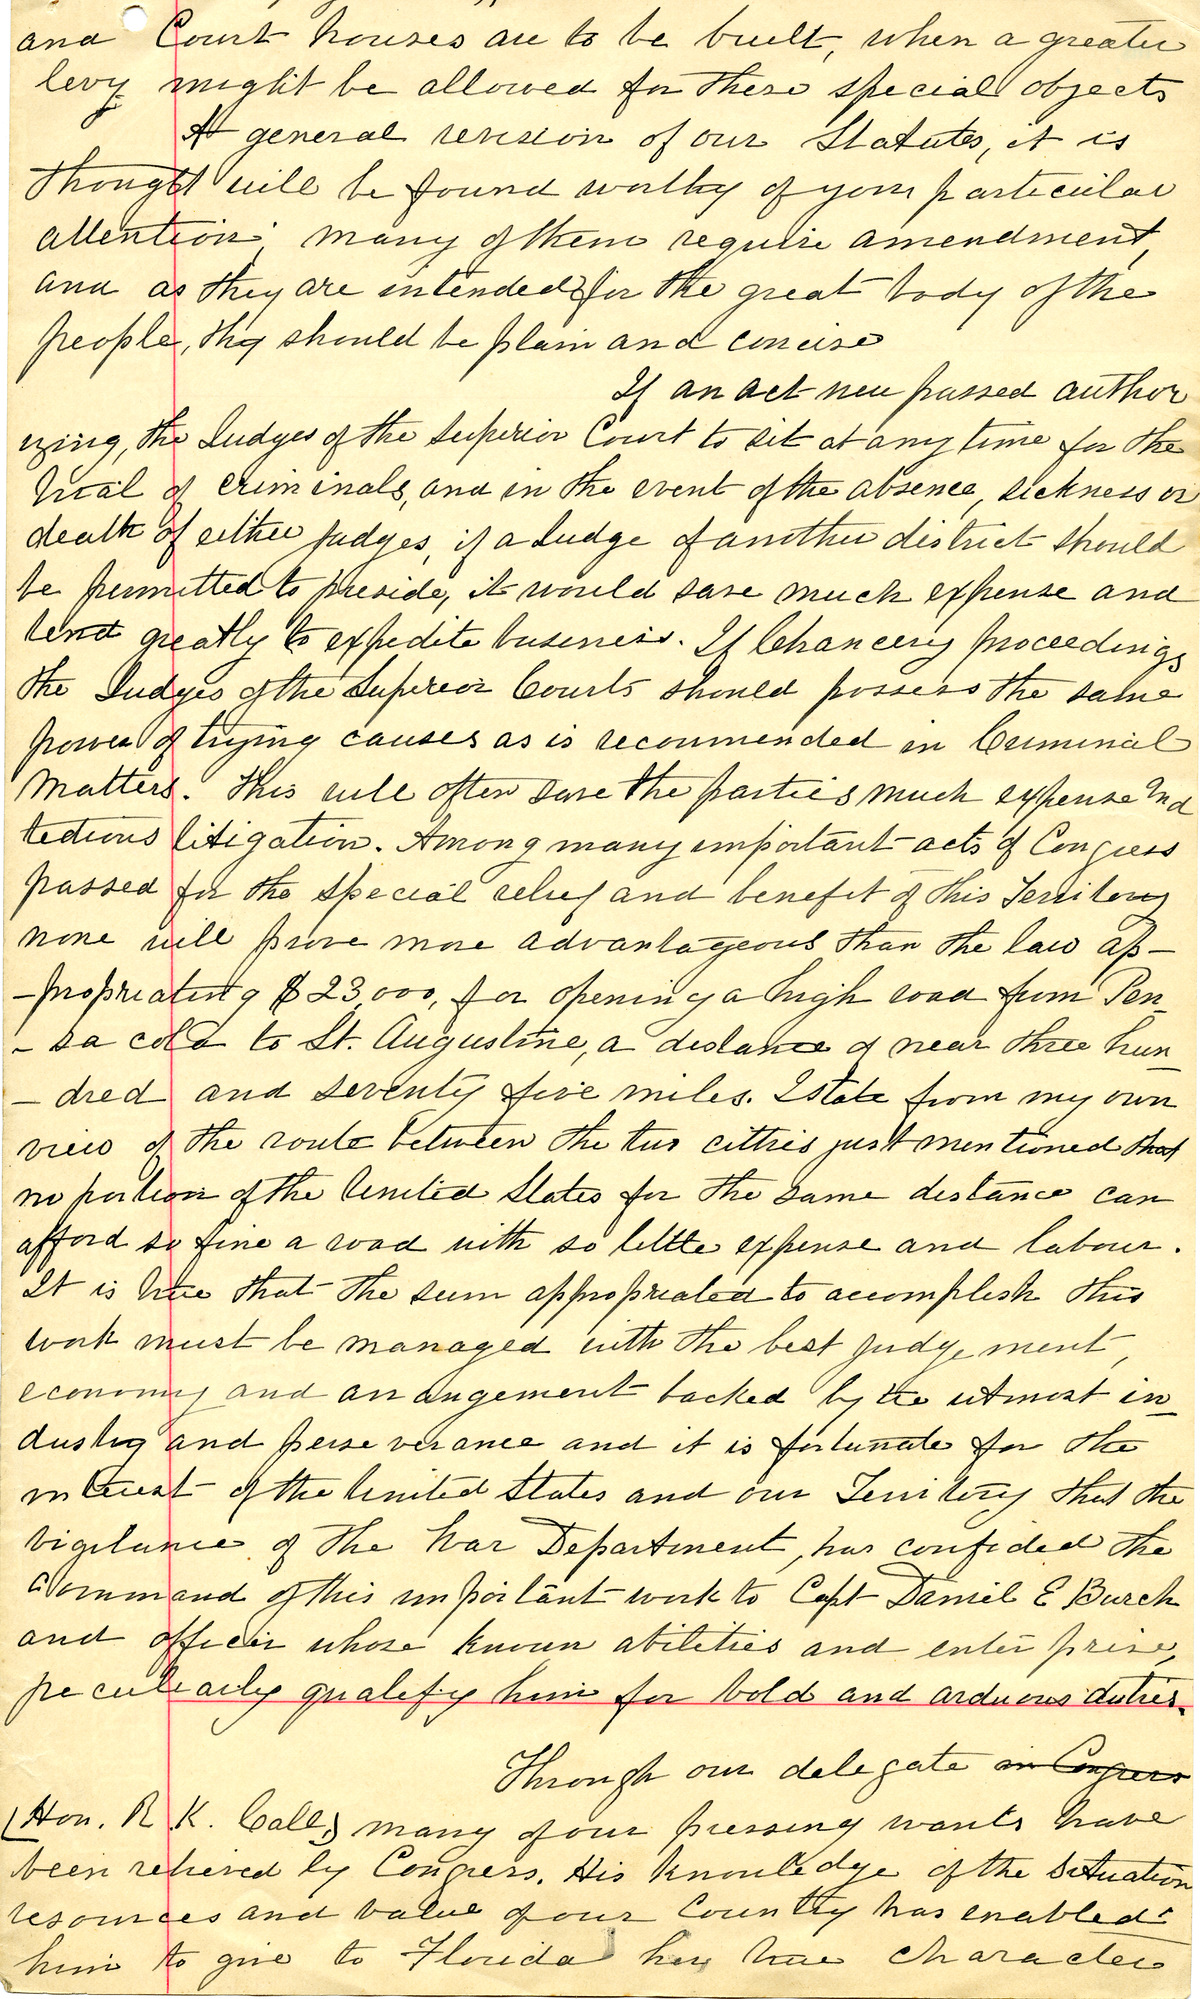 and Court houses are to be built, when a greater
levy might be allowed for these special objects
A general revision of our Statutes, it is
thought will be found worthy of your particular
attention. Many of them require amendment,
and as they are intended for the great body of the
people, thy should be plain and concise
If an act neu passed author
izing, the Judges of the Superior Court to sit at any time for the
trial of criminals, and in the event of the absence, sickness or
death of either judges, if a Judge of another district should
be permitted to preside, it would save much expense and
tend greatly to expedite business. If Chancery proceedings
the Judges of the Superior Courts should possess the same
power of trying causes as is recommended in Criminal
Matters. This will often save the parties much expense and
tedious litigation. Among many important acts of Congress
passed for the special relief and benefit of this Territory
none will prove more advantageous than the law ap-
-propriating $23,000, for opening a high road from Pen_
-sa cola to St. Augustine, a distance of near three hun_
-dred and seventy five miles. I state from my own
view of the route between the two citties just mentioned that
no portion of the United States for the same distance can
afford so fine a road with so little expense and labour.
It is true that the sum appropriated to accomplish this
work must be managed with the best judgement,
economy and arrangement backed by the utmost in_
dustry and perseverance and it is fortunate for the
interest of the United States and our Territory that the
vigilance of the War Department, has confided the
Command of this important work to Capt Daniel E Burch
and officer whose known abilities and enterprise,
peculiarly qualify him for bold and arduous duties.
Through our delegate in Congress
(Hon. R K. Call) many of our pressing wants have
been relieved by Congress. His knowledge of the situation
resources and value of our Country has enabled
him to give to Florida her true character